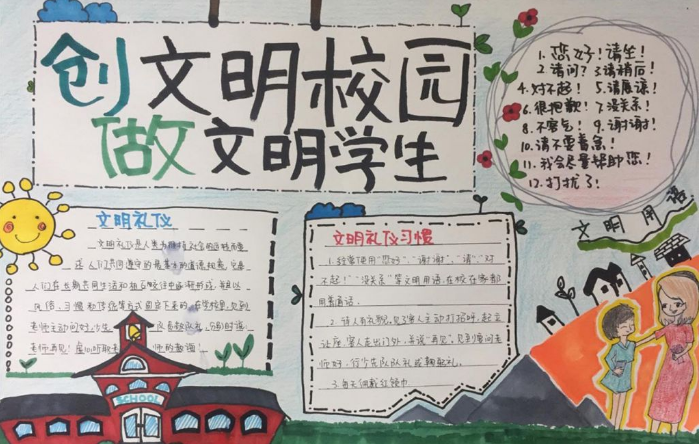 创文明校园
做文明学生
1.您好！请坐！
2.请问？3.请稍后！
4.对不起！5.请原谅！
6.很抱歉！7.没关系！
8.不客气！9.谢谢！
10.请不要着急！
11.我会尽量帮助您！
12.打扰了！
文明用语
文明礼仪
文明礼仪是人类为维持社会的正常而要
求人们共同遵守的最基本的道德规范，它是
人们在长期共同生活和相互交往中逐渐形成，并且以
风俗、习惯和传统等方式固定下来的。在学校里，见到
老师主动问好，
老师再见！
SCHOOL
文明礼仪习惯
1.经常使用“您好”、“谢谢”、“请”、“对
不起！”“没关系”等文明用语，在校在家都
用普通话。
2.待人有礼貌，见了客人主动打招呼，起立
让座，客人走出门外，并说“再见”。见到要问老
师好，行少先队队礼或鞠躬礼。
3.每天佩戴红领巾